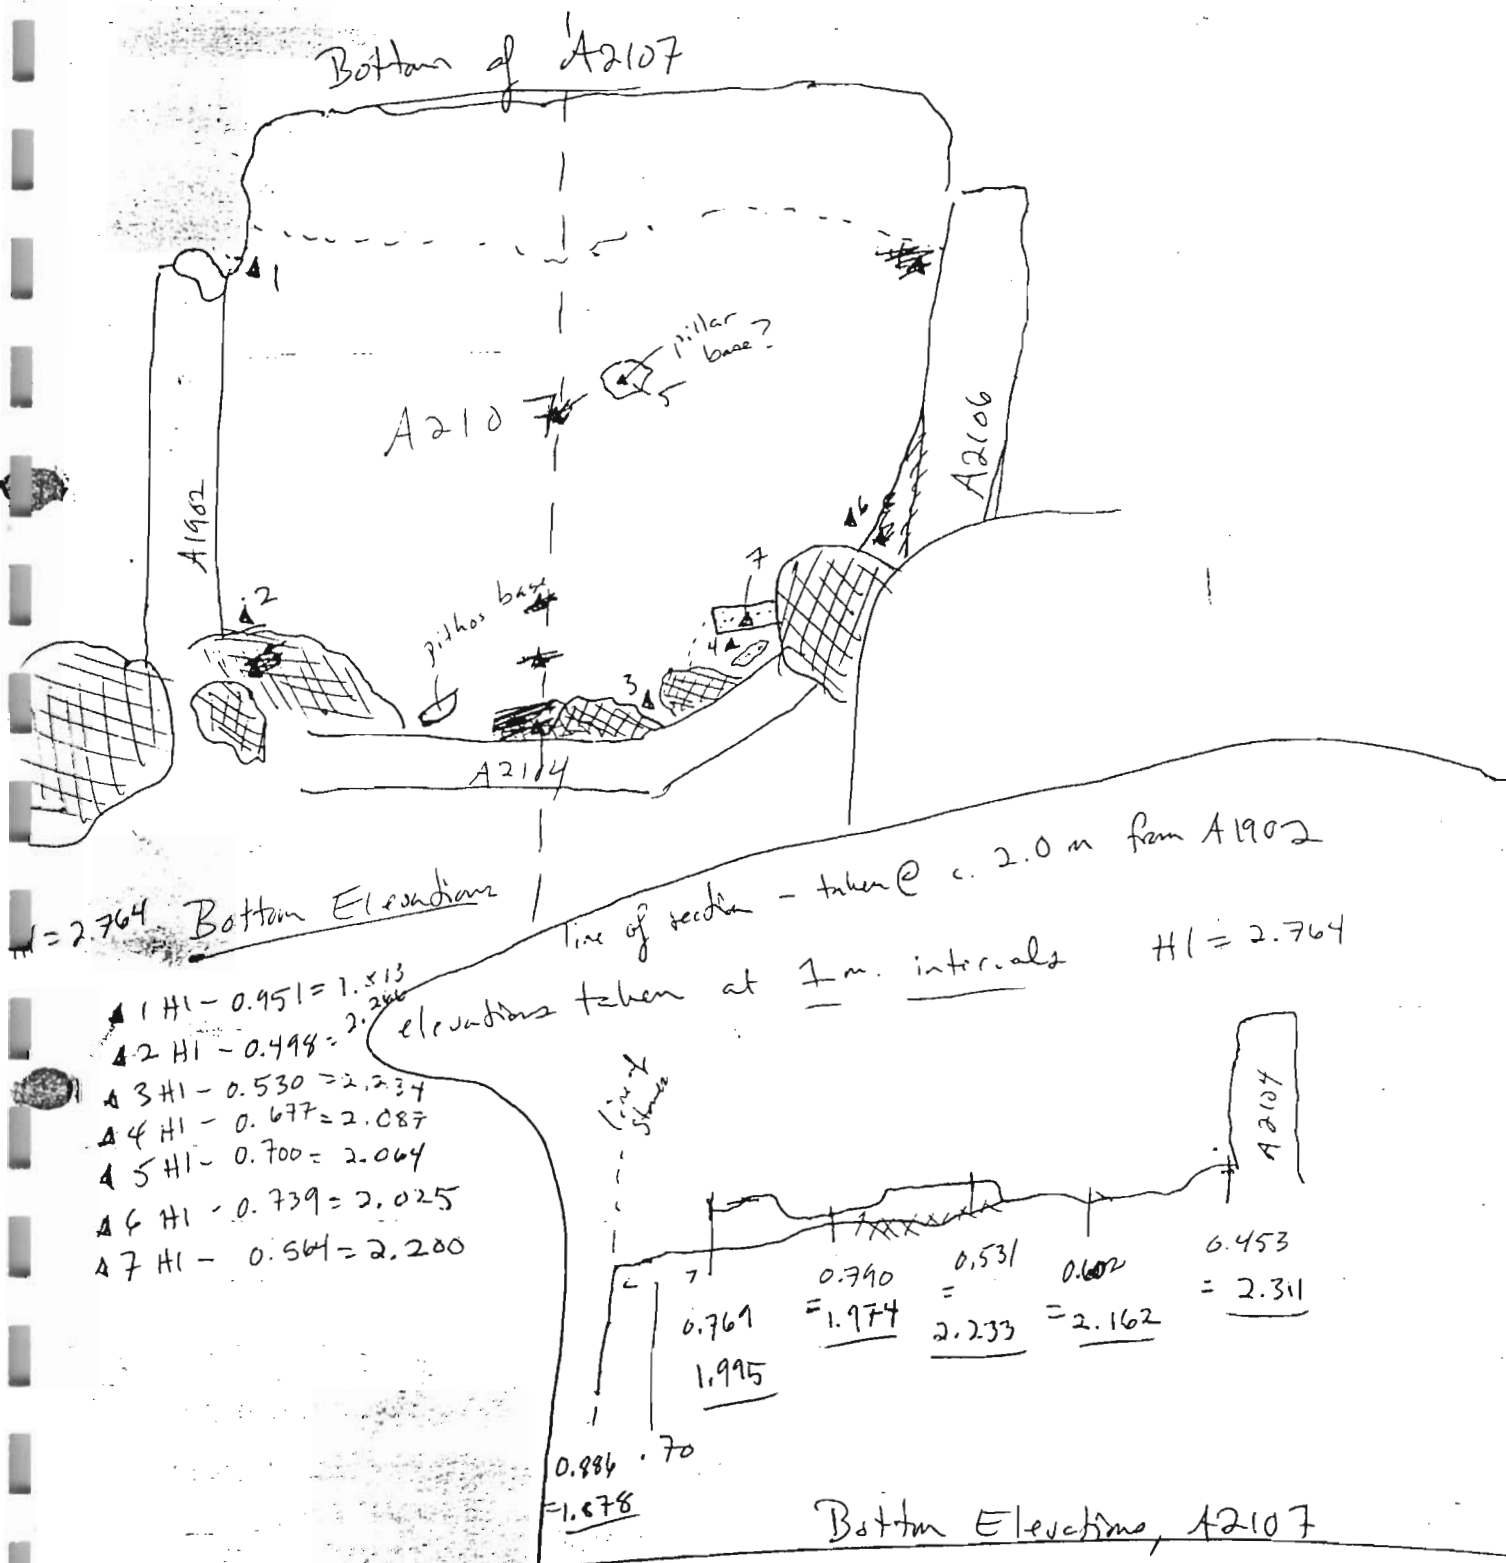 Bottom of A2107
1
pillar
base?
5
A2107
A2106
A1902
6
7
2
pithos base
4
3
A2104
line of section - taken @ c. 2.0 m from A1902
=2.764 Bottom Elevations
elevations taken at 1 m. intervals HI = 2.764
Δ 1 HI - 0.951 = 1.813
Δ 2 HI - 0.498 = 2.266
Δ 3 HI - 0.530 = 2.234
Δ 4 HI - 0.677 = 2.087
Δ 5 HI - 0.700 = 2.064
Δ 6 HI - 0.739 = 2.025
Δ 7 HI - 0.564 = 2.200
line of
stones
A2104
0.769
1.995
0.790
=1.974
0.531
=
2.233
0.602
=2.162
0.453
= 2.311
0.886
=1.878
.70
Bottom Elevations, A2107